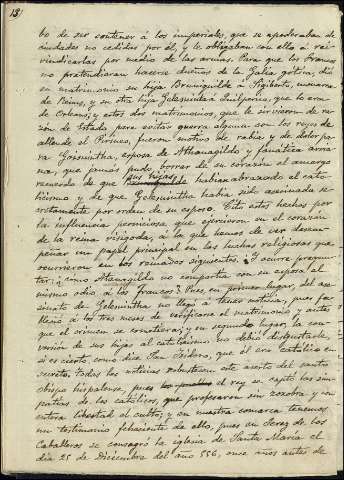 13
bo de ser contener á los imperiales, que se apoderaban de
ciudades no cedidas por él, y le obligaban con ello á rei-
vindicarlas por medio de las armas. Para que los Francos
no pretendieran hacerse dueños de la Galia gótica, dió
en matrimonio su hija Brunequilda á Sigiberto, monarca
de Reims, y su otra hija Gelesvinta á Quilperico, que lo era
de Orleans, y estos dos matrimonios, que le sirvieron de ra-
zón de Estado, para evitar guerra alguna con los reyes de
allende el Pirineo, fueron motivo de rabia y de dolor pa-
ra Gosuintha, esposa de Athanagildo y fanática arria-
na, que jamás pudo borrar de su corazón el amargo
recuerdo de que sus hijas habian abrazado el cato-
licismo y de que Gelesvintha había sido asesinada se-
cretamente por orden de su esposo. Cito estos hechos por
la influencia perniciosa que ejercieron en el corazón
de la reina visigoda, á la que hemos de ver desem-
peñar un papel principal en las luchas religiosas que
ocurrieron en los reinados siguientes. Y ocurre pregun-
tar: ¿Cómo Atanagildo no compartía con su esposa el
mismo odio á los francos? Pues en primer lugar, del ase-
sinato de Gelesvintha no llegó á tener noticia, pues fa-
lleció á los tres meses de verificarse el matrimonio y antes
que el crimen se cometiera; y en segundo lugar, la con-
versión de sus hijas al catolicismo no debió disgustarle,
si es cierto, como dice San Isidoro, que él era católico en
secreto. Todos los indicios robustecen este aserto del santo
obispo hispalense, pues el rey se captó las sim-
patías de los católicos, que profesaron sin zozobra y con
entera libertad el culto; y en nuestra comarca tenemos
un testimonio fehaciente de ello, pues en Jerez de los
Caballeros se consagró la iglesia de Santa María el
dia 25 de Diciembre del año 556, once años antes de